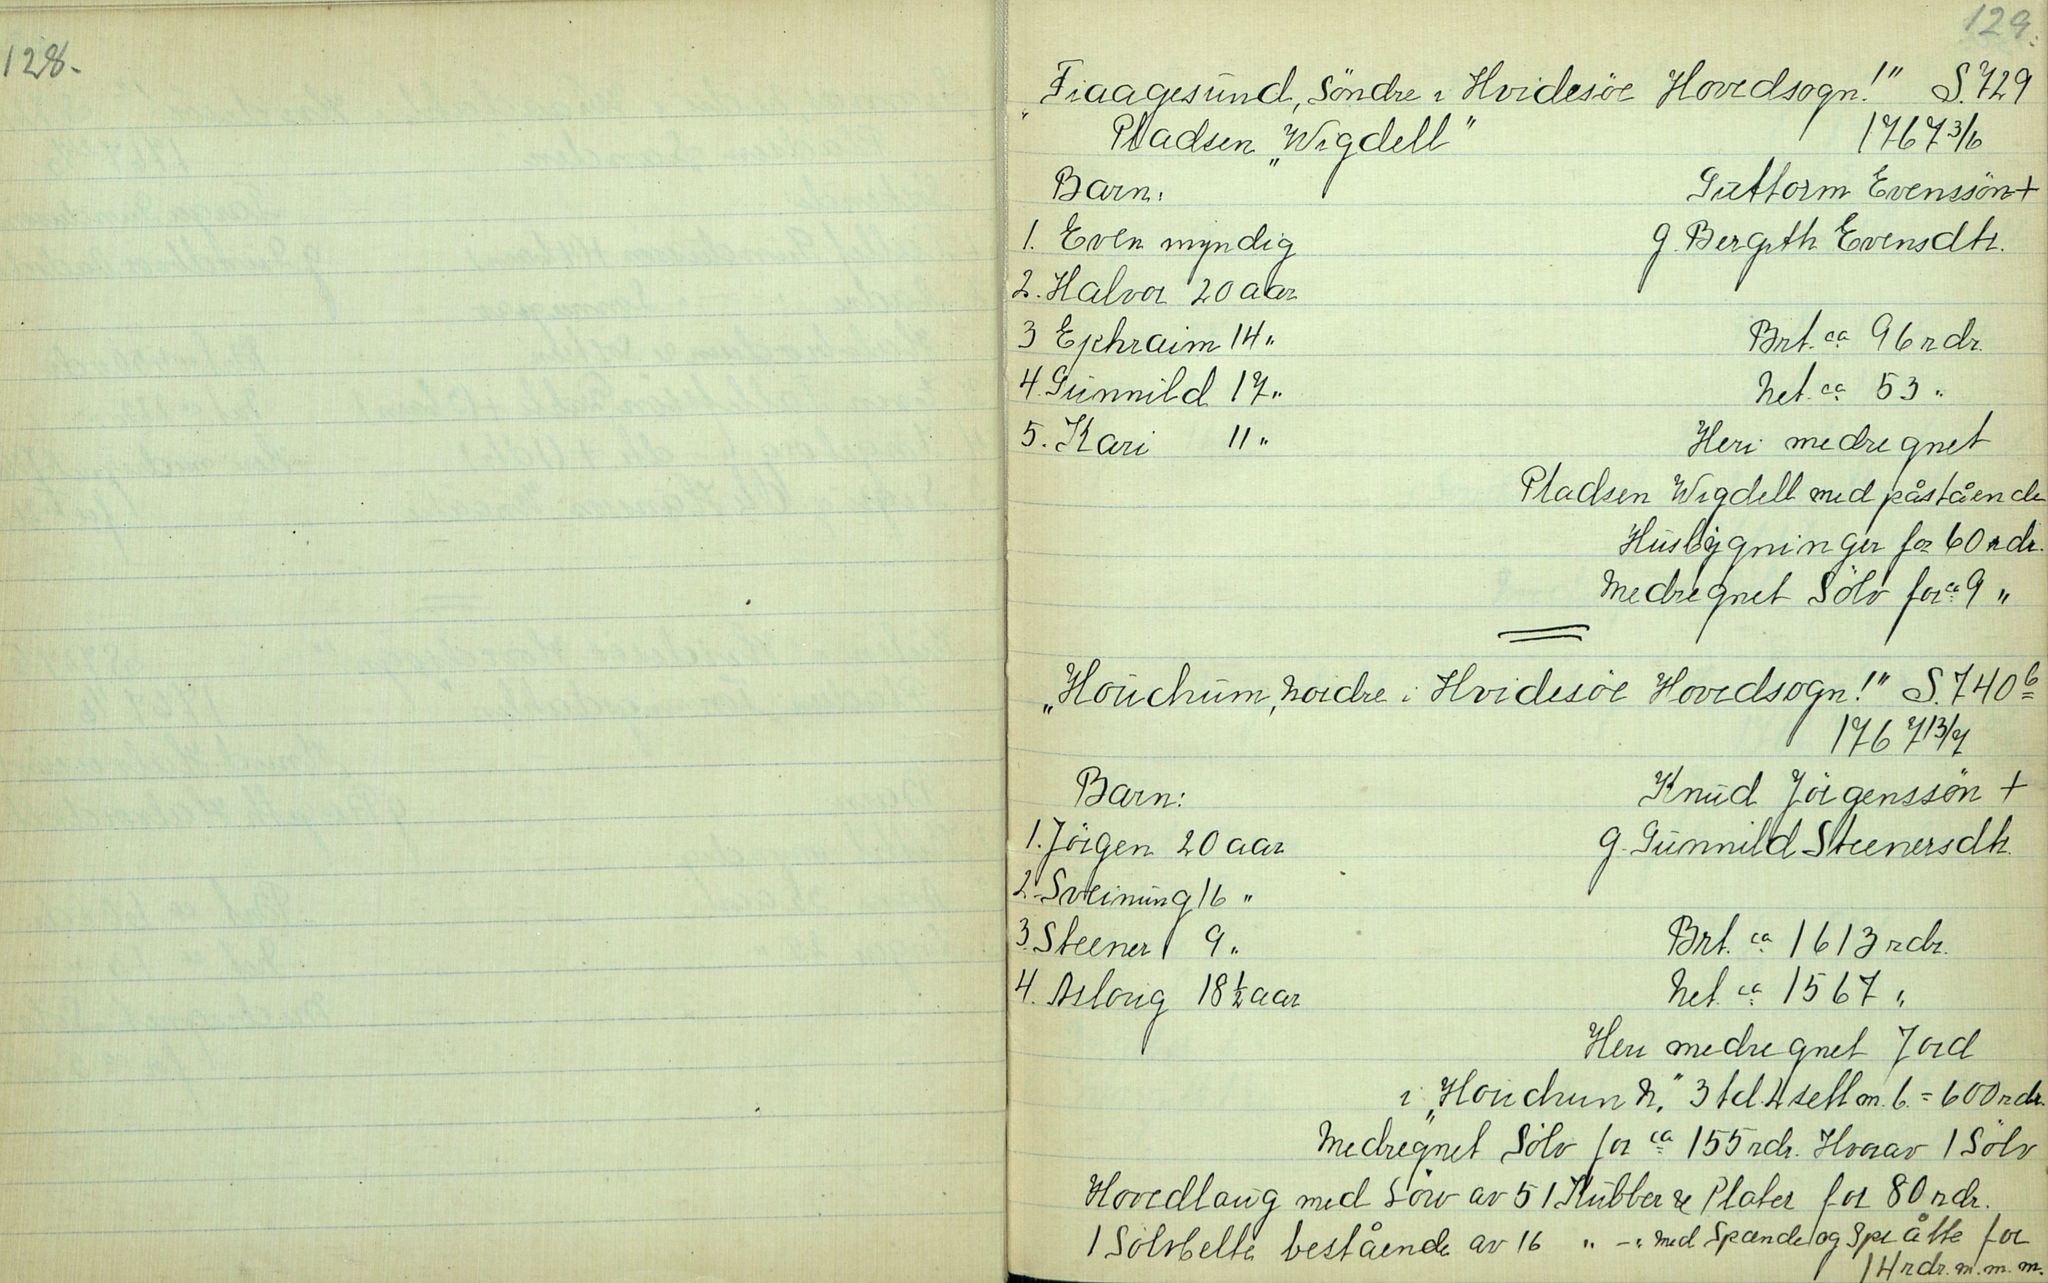 128.
129.
"Fiaagesund, Söndre i Hvidesöe Hovedsogn!" S. 729
Pladsen "Wigdell" 1767 3/6
Barn: Guttorm Evenssön +
1. Even myndig g. Bergith Evensdtr.
2. Halvor 20 aar
3 Ephraim 14 " Brt. ca 96 rdr.
4. Gunnild 17 " Net. ca 53 "
5. Kari 11 " Heri medregnet
Pladsen Wigdell med påstående
Husbygninger for 60 rdr.
Medregnet Sölv for ca 9 "
"Houchum, Nordre i Hvidesöe Hovedsogn!" S. 740 b
1767 13/7
Barn: Knud Jörgenssön +
1. Jörgen 20 aar g. Gunnild Steenersdtr.
2. Sveinung 16 "
3. Steener 9 " Brt. ca 1613 rdr.
4. Asloug 18 1/2 aar Net. ca 1567 "
Heri medregnet Jord
i "Houchum N." 3 td. 4 sett m. b. = 600 rdr.
Medregnet Sölv for ca 155 rdr. Hvorav 1 Sölv
Hovedlaug med Sörv av 51 Knubber & Plater for 80 rdr.
1 Sölvbelte bestående av 16 " - " med Spænde og Språtte for
14 rdr. m. m. m.